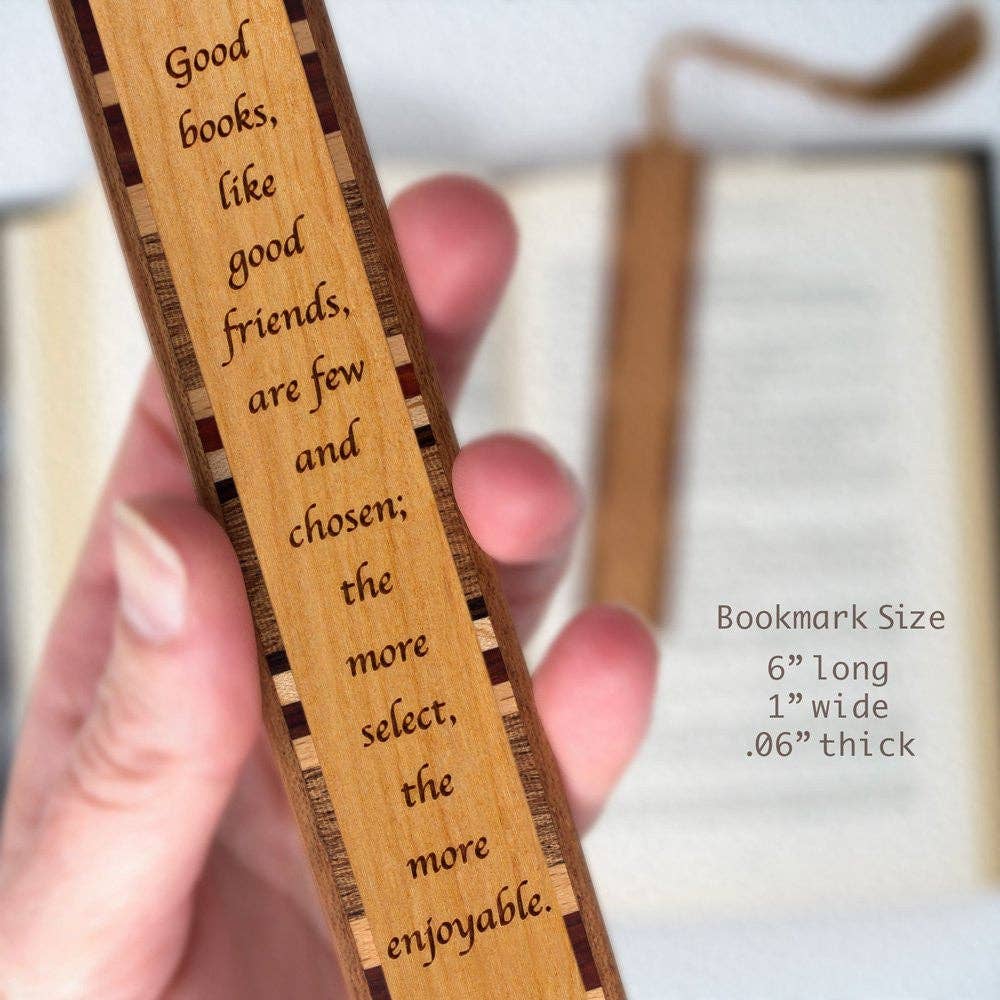 Good
books,
like
good
friends,
are few
and
chosen;
the
more
select,
the
more
enjoyable.
Bookmark Size
6” long
1” wide
.06” thick